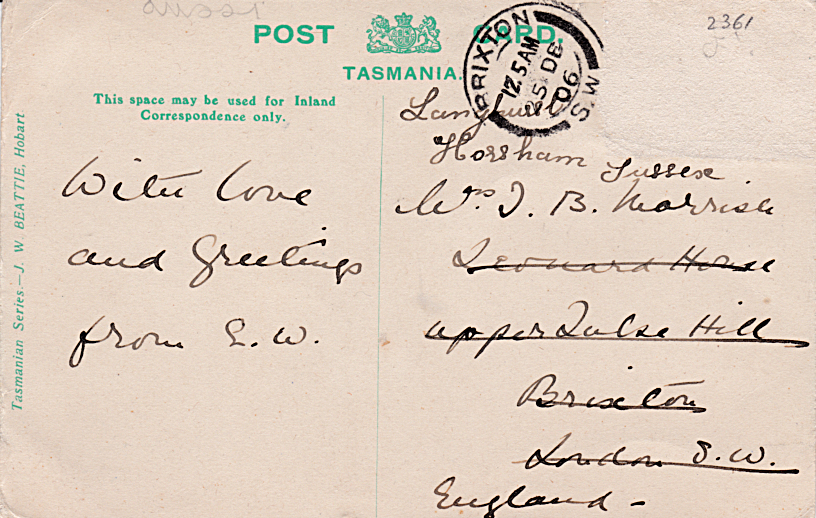 POST CARD.
TASMANIA.
This space may be used for Inland
Correspondence only.
Tasmanian Series.—J. W BEATTIE, Hobart
2361
BRIXTON
12.5AM
25 DE
06
S.W
With love
and Greetings
from E.W.
Horsham Sussex
Mrs J. B. Morrish
Leonard House
upper Tulse Hill
Brixton
London S.W.
England -